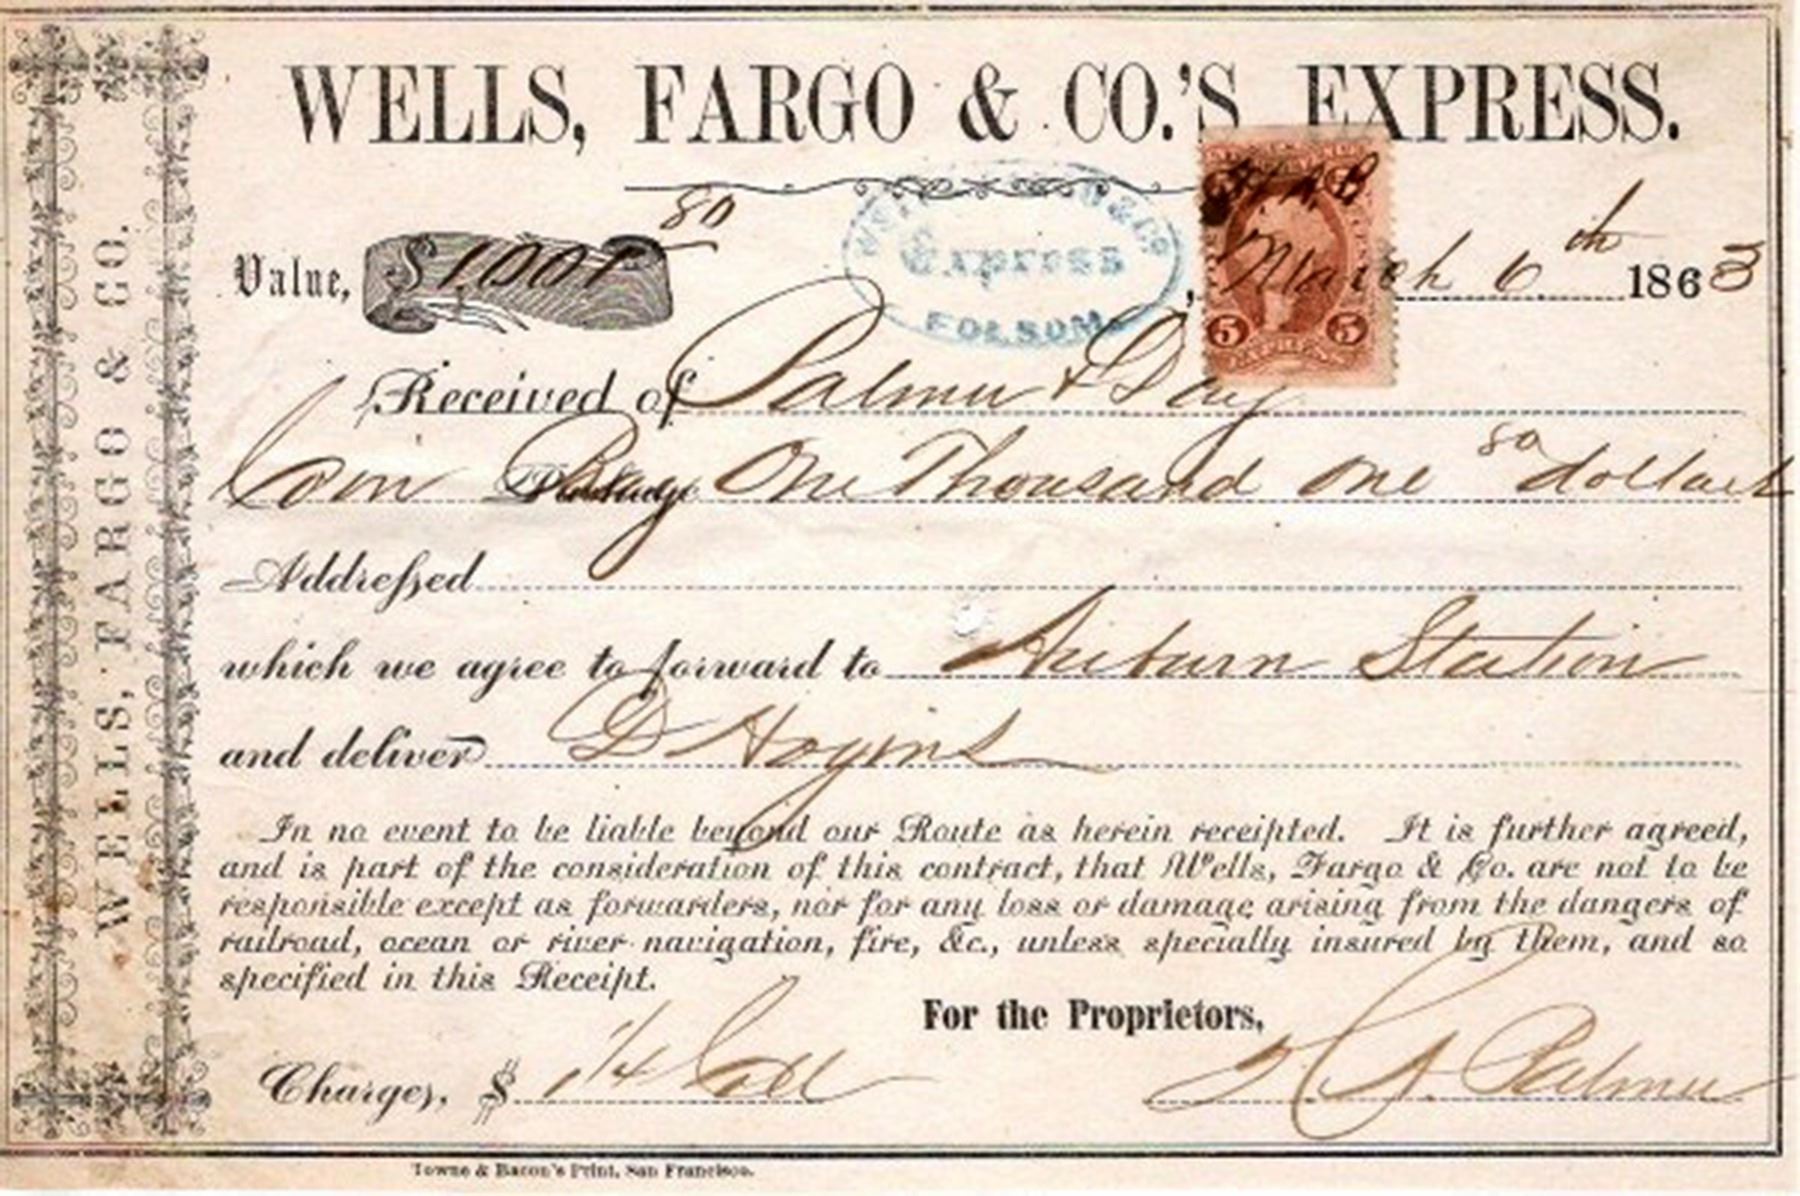 WELLS, FARGO & CO.'S EXPRESS.
WELLS, FARGO & CO.
Value, $1,001 80
Express
FOLSOM.
H.A.P.
March 6th 1863
5 5
EXPRESS
Received of Palmer & Day
Coin Bag One Thousand One 80 dollars
Addressed
which we agree to forward to Auburn Station
and deliver D Hogins
In no event to be liable beyond our Route as herein receipted. It is further agreed,
and is part of the consideration of this contract, that Wells, Fargo & Co. are not to be
responsible except as forwarders, nor for any loss or damage arising from the dangers of
railroad, ocean or river navigation, fire, &c., unless specially insured by them, and so
specified in this Receipt.
For the Proprietors,
Charges, $ 1/4 Coll
H. A. Palmer
Towne & Bacon's Print, San Francisco.